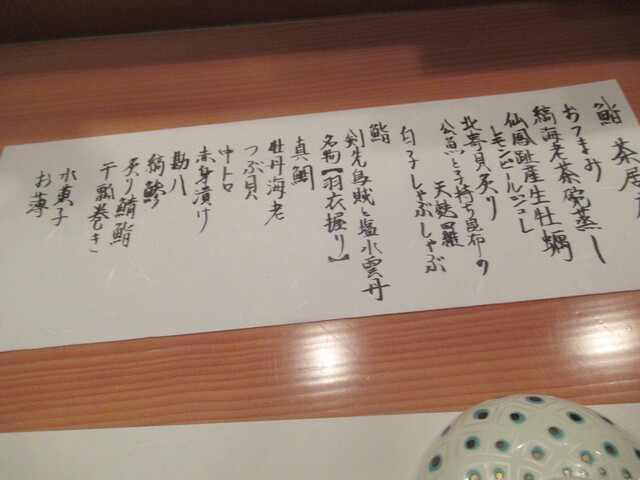 鮨 茶居
おつまみ
縞海老茶碗蒸し
仙鳳趾産生牡蠣
レモンピールジュレ
北寄貝炙り
公魚と子持ち昆布の
天麩羅
白子しゃぶしゃぶ
鮨
剣先烏賊と塩水雲丹
名物【羽衣握り】
真鯛
牡丹海老
つぶ貝
中トロ
赤身漬け
勘八
縞鯵
炙り鯖鮨
干瓢巻き
水菓子
お薄